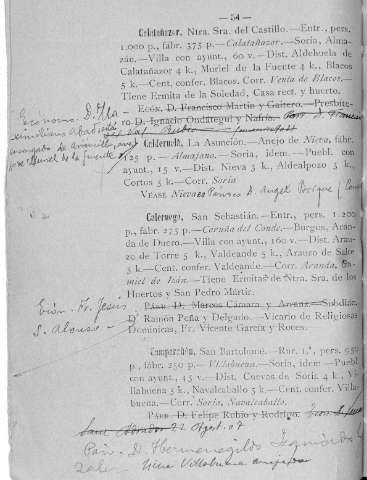 — 54 —
Calatañazor. Ntra. Sra. del Castillo.—Entr., pers.
1.000 p., fábr. 375 p.—Calatañazor.—Soria, Alma-
zán.—Villa con ayunt., 60 v.—Dist. Aldehuela de
Calatañazor 4 k., Muriel de la Fuente 4 k., Blacos
5 k.—Cent. confer. Blacos. Corr. Venta de Blacos.—
Tiene Ermita de la Soledad, Casa rect. y huerto.
Ecón. D. Francisco Martín y Gaitero.—Presbíte-
ro D. Ignacio Ondátegui y Nafría.
Ecónomo D. Ma-
ximiliano
encargado de
Muriel de la Fuente
Calderuela, La Asunción.—Anejo de Nieva, fábr.
125 p.—Almajano.—Soria, idem.—Puebl. con
ayunt., 15 v.—Dist. Nieva 3 k., Aldealpozo 3 k.,
Cortos 3 k.—Corr. Soria
Véase Nieva Párroco D. Angel
Caleruega, San Sebastián.—Entr., pers. 1.200
p., fábr. 275 p.—Coruña del Conde.—Burgos, Aran-
da de Duero.—Villa con ayunt., 160 v.—Dist. Arau-
zo de Torre 5 k., Valdeande 5 k., Arauzo de Salce
3 k.—Cent. confer. Valdeande.—Corr. Aranda, Gu-
miel de Izán.—Tiene Ermitas de Ntra. Sra. de los
Huertos y San Pedro Mártir.
Párr. D. Marcos Cámara y Arranz.—Subdiác.
D. Ramón Peña y Delgado.—Vicario de Religiosas
Dominicas, Fr. Vicente García y Roces.
Ecón. Fr. Jesús
S. Alonso
Camparañón, San Bartolomé.—Rur. 1.ª, pers. 950
p., fábr. 250 p.—Villabuena.—Soria, idem.—Puebl.
con ayunt., 45 v.—Dist. Cuevas de Soria 4 k., Vi-
llabuena 3 k., Navalcaballo 3 k.—Cent. confer. Villa-
buena.—Corr. Soria, Navalcaballo.
Párr. D. Felipe Rubio y Rodrigo.
22 Agost. 07
Párr. D. Hermenegildo Izquierdo
tiene Villabuena